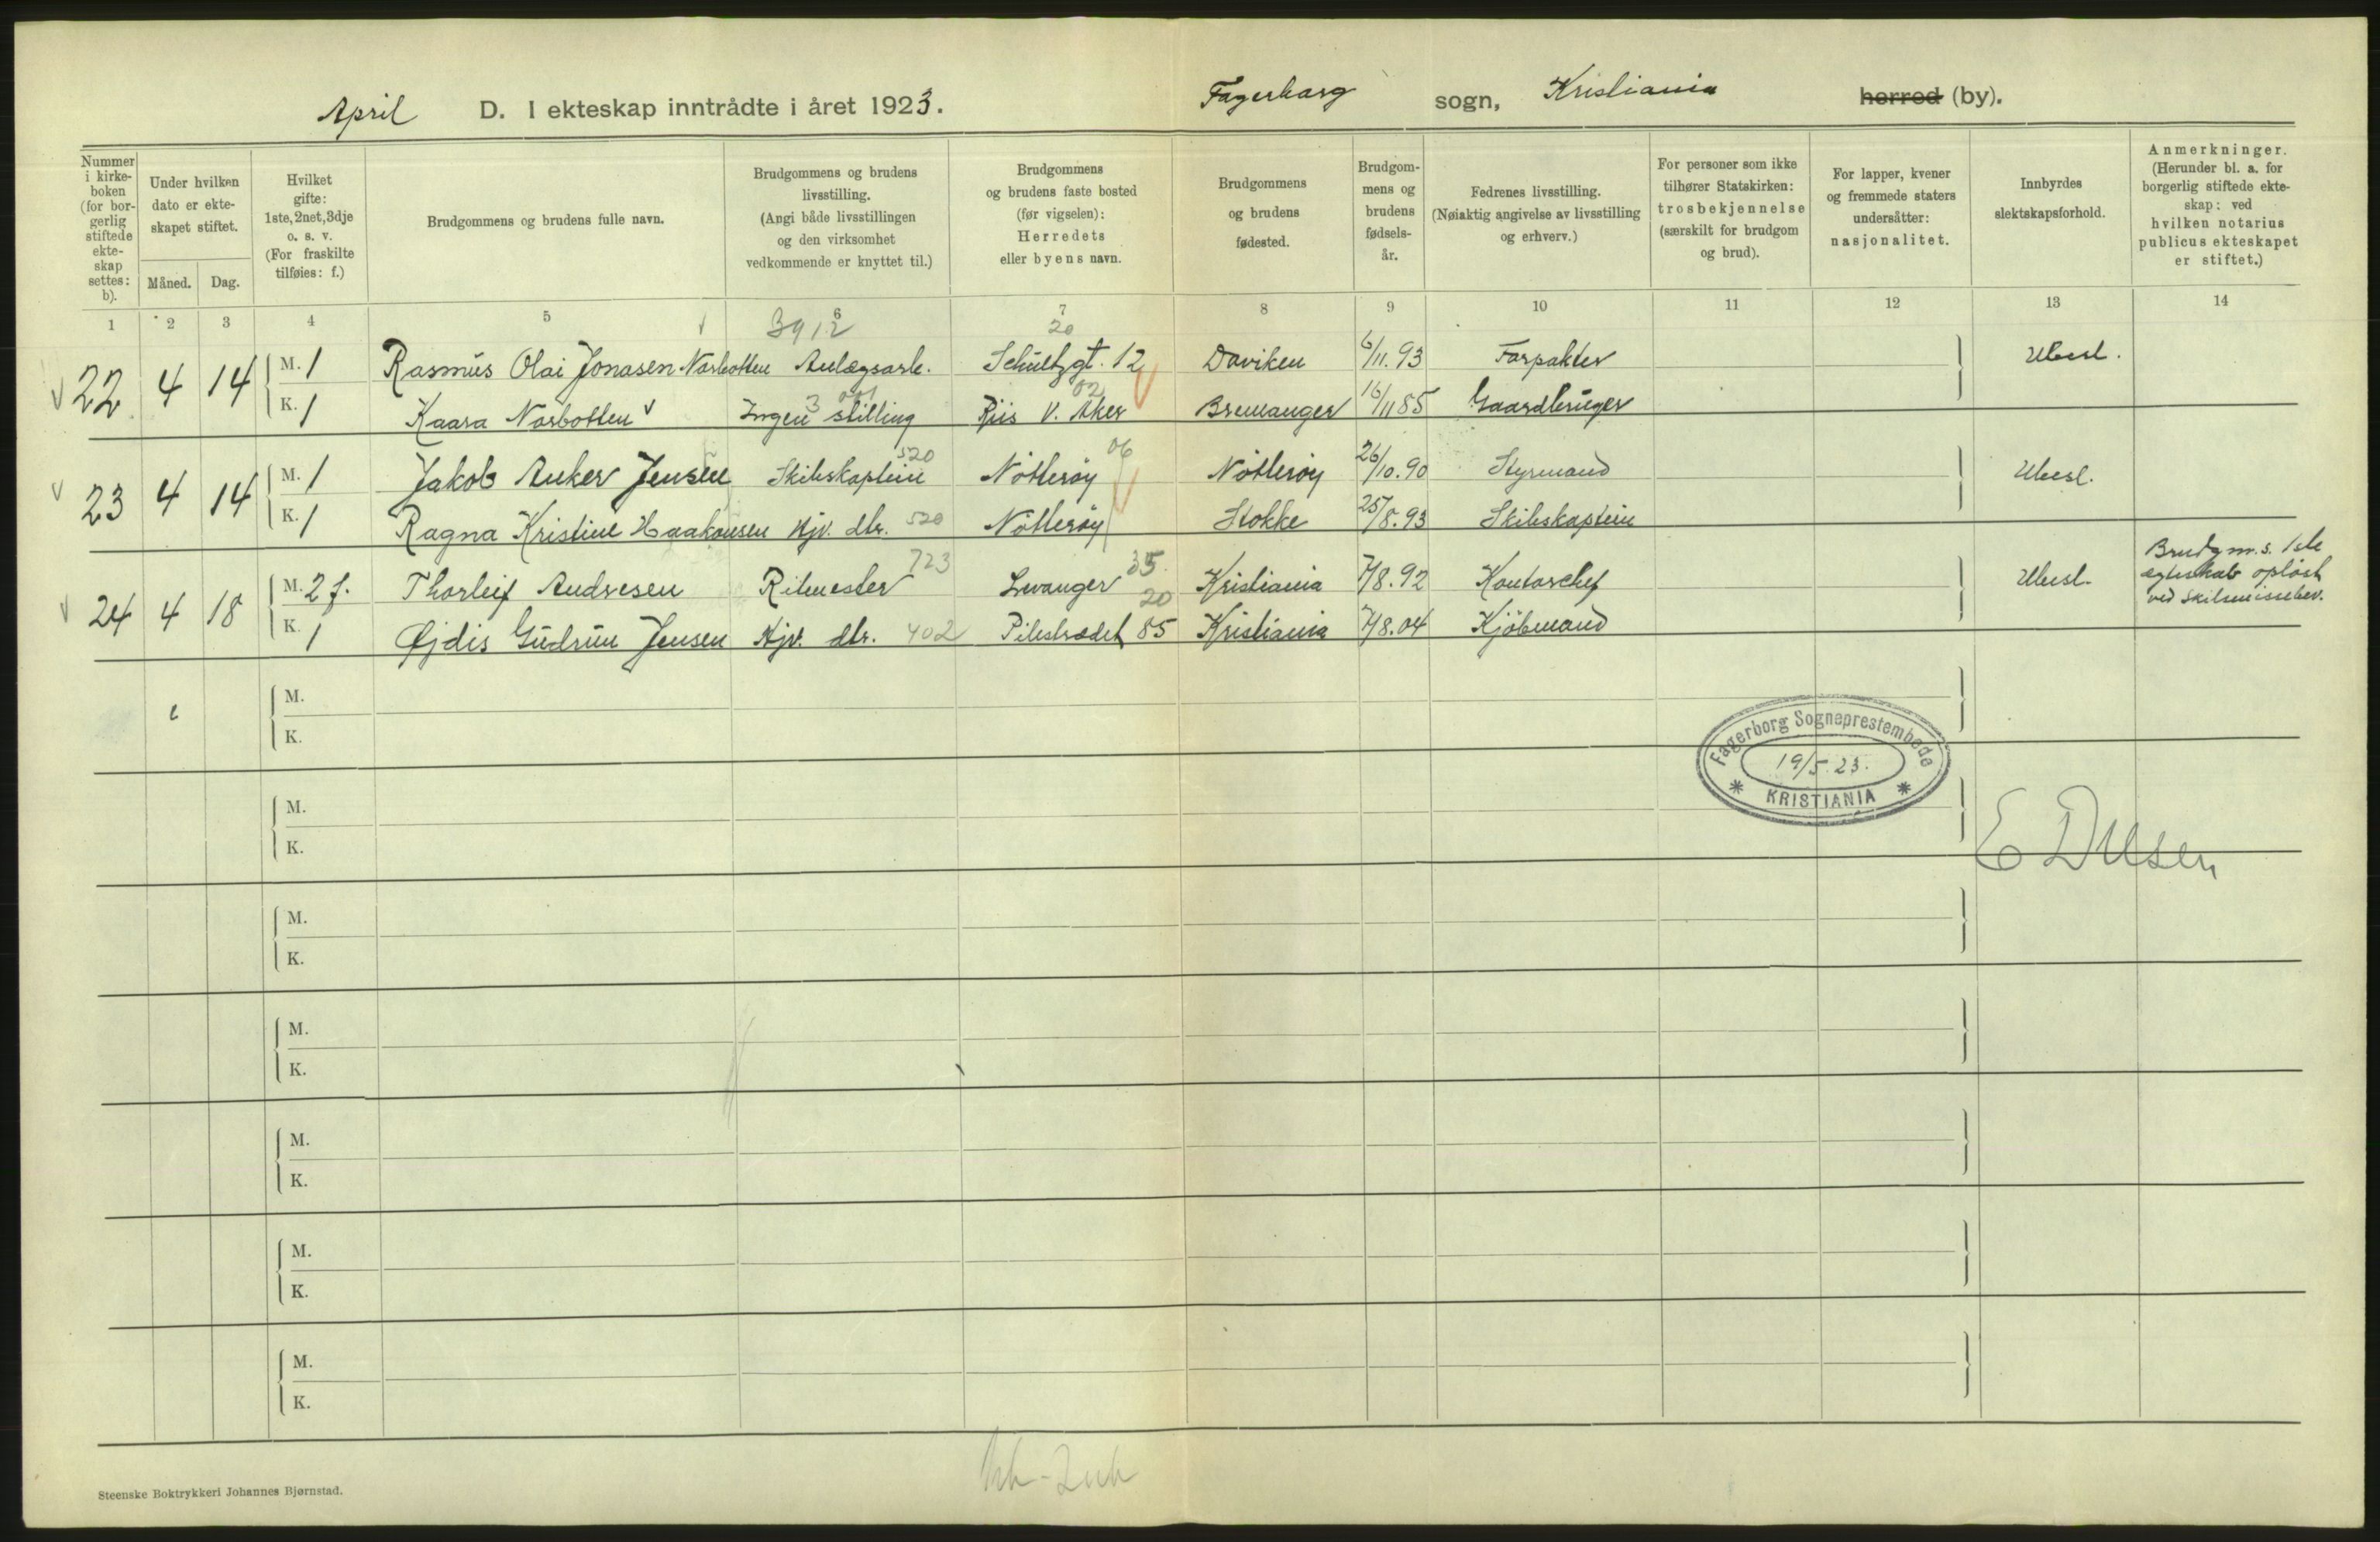 April D. I ekteskap inntrådte i året 1923. Fagerborg sogn, Kristiania herred (by).
Nummer i kirkeboken (for borgerlig stiftede ekteskap settes: b).
Under hvilken dato er ekteskapet stiftet.
Måned. Dag.
Hvilket gifte: 1ste, 2net, 3dje o. s. v. (For fraskilte tilføies: f.)
Brudgommens og brudens fulle navn.
Brudgommens og brudens livsstilling. (Angi både livsstillingen og den virksomhet vedkommende er knyttet til.)
Brudgommens og brudens faste bosted (før vigselen): Herredets eller byens navn.
Brudgommens og brudens fødested.
Brudgommens og brudens fødselsår.
Fedrenes livsstilling. (Nøiaktig angivelse av livsstilling og erhverv.)
For personer som ikke tilhører Statskirken: trosbekjennelse (særskilt for brudgom og brud).
For lapper, kvener og fremmede staters undersåtter: nasjonalitet.
Innbyrdes slektskapsforhold.
Anmerkninger. (Herunder bl. a. for borgerlig stiftede ekteskap: ved hvilken notarius publicus ekteskapet er stiftet.)
1 2 3 4 5 6 7 8 9 10 11 12 13 14
3912 20
22 4 14 M. 1 Rasmus Olai Jonasen Norbotten Anlægsarb. Schultzgt. 12 Daviken 6/11.93 Forpakter Ubesl.
K. 1 Kaara Norbotten Ingen stilling Riis V. Aker 02 Bremanger 16/11 85 Gaardbruger
23 4 14 M. 1 Jakob Anker Jensen Skibskaptein 520 Nötteröy 06 Nötteröy 26/10.90 Styrmand Ubesl.
K. 1 Ragna Kristine Haakonsen Hjv. dtr. 520 Nötteröy Stokke 25/8.93 Skibskaptein
24 4 18 M. 2 f. Thorleif Andresen Ritmester 723 Levanger 35 Kristiania 7/8.92 Kontorchef Ubesl. Brudgm.s. 1ste
egteskab opløst
ved skilsmissebev.
K. 1 Øjdis Gudrun Jensen Hjv. dtr. 402 Pilestrædet 85 20 Kristiania 7/8.04 Kjöbmand
M.
K.
Fagerborg Sogneprestembede
19/5.23.
* KRISTIANIA *
M.
K.
M.
K.
M.
K.
M.
K.
M.
K.
M.
K.
Steenske Boktrykkeri Johannes Bjørnstad.